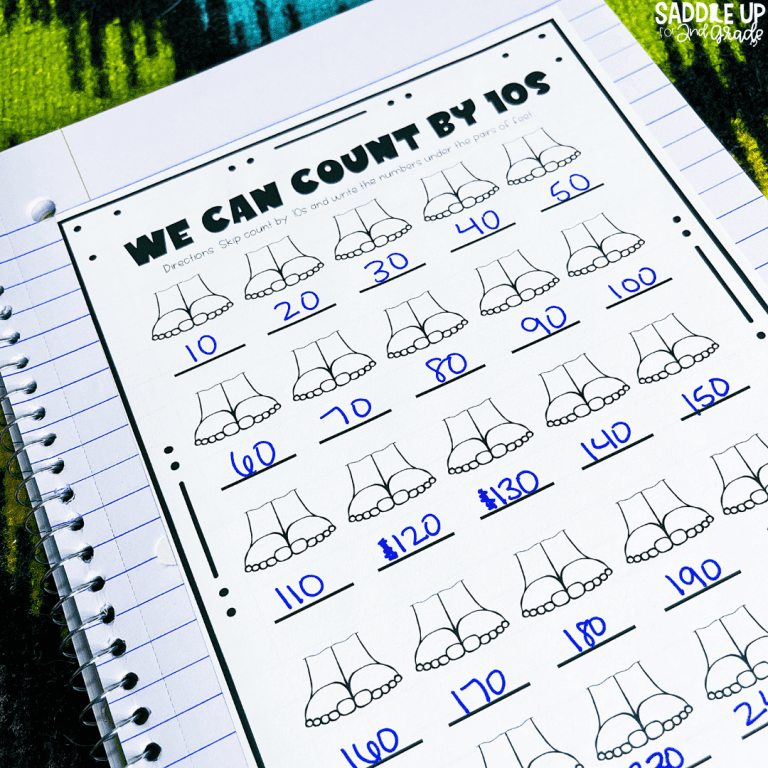 SADDLE UP
for 2nd Grade
WE CAN COUNT BY 10S
Directions: Skip count by 10s and write the numbers under the pairs of feet.
10 20 30 40 50
60 70 80 90 100
110 120 130 140 150
160 170 180 190